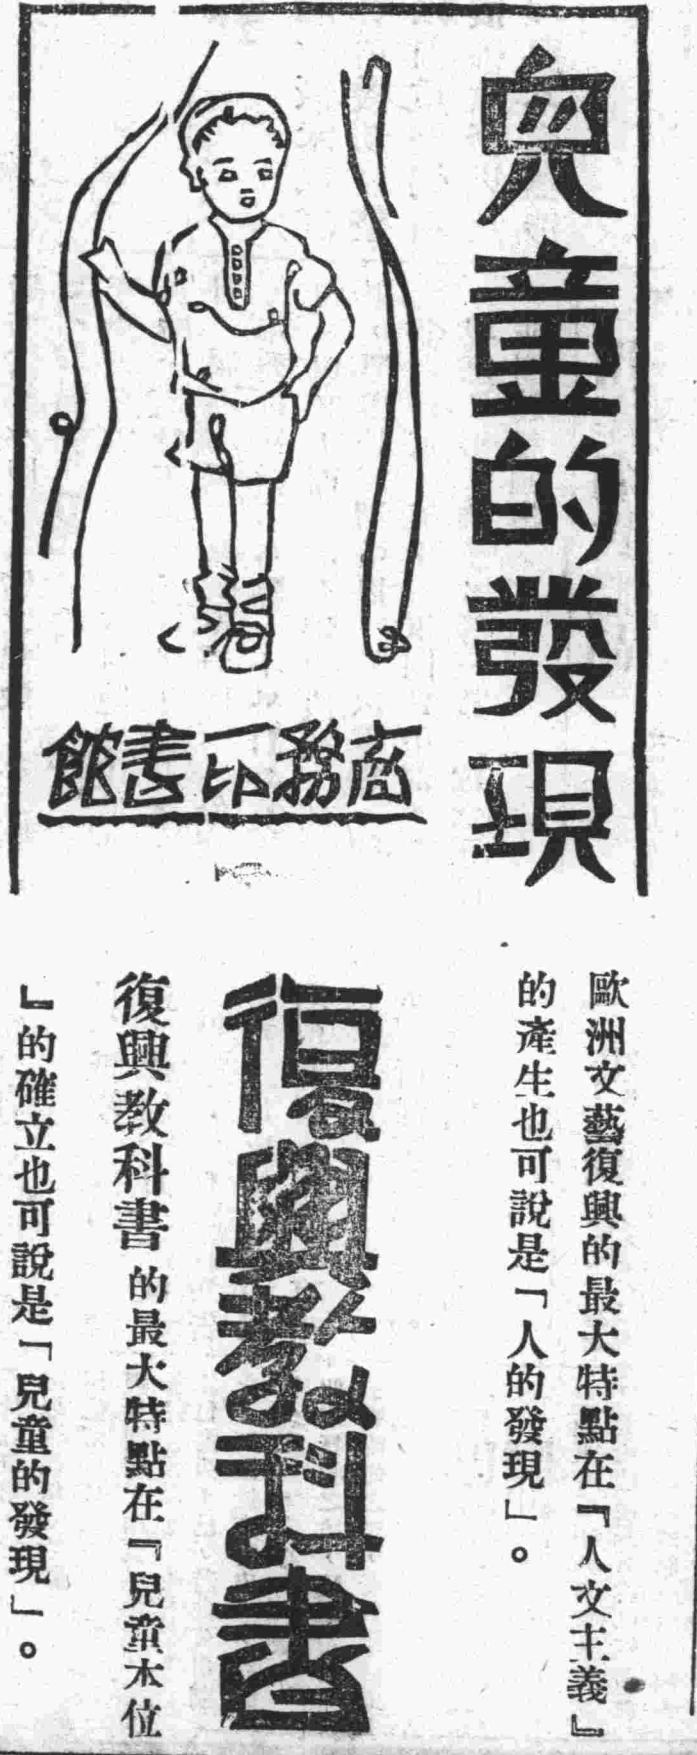 兒童的發現
商務印書館
歐洲文藝復興的最大特點在『人文主義』
的產生也可說是「人的發現」。
復興教科書
復興教科書的最大特點在『兒童本位
』的確立也可說是「兒童的發現」。